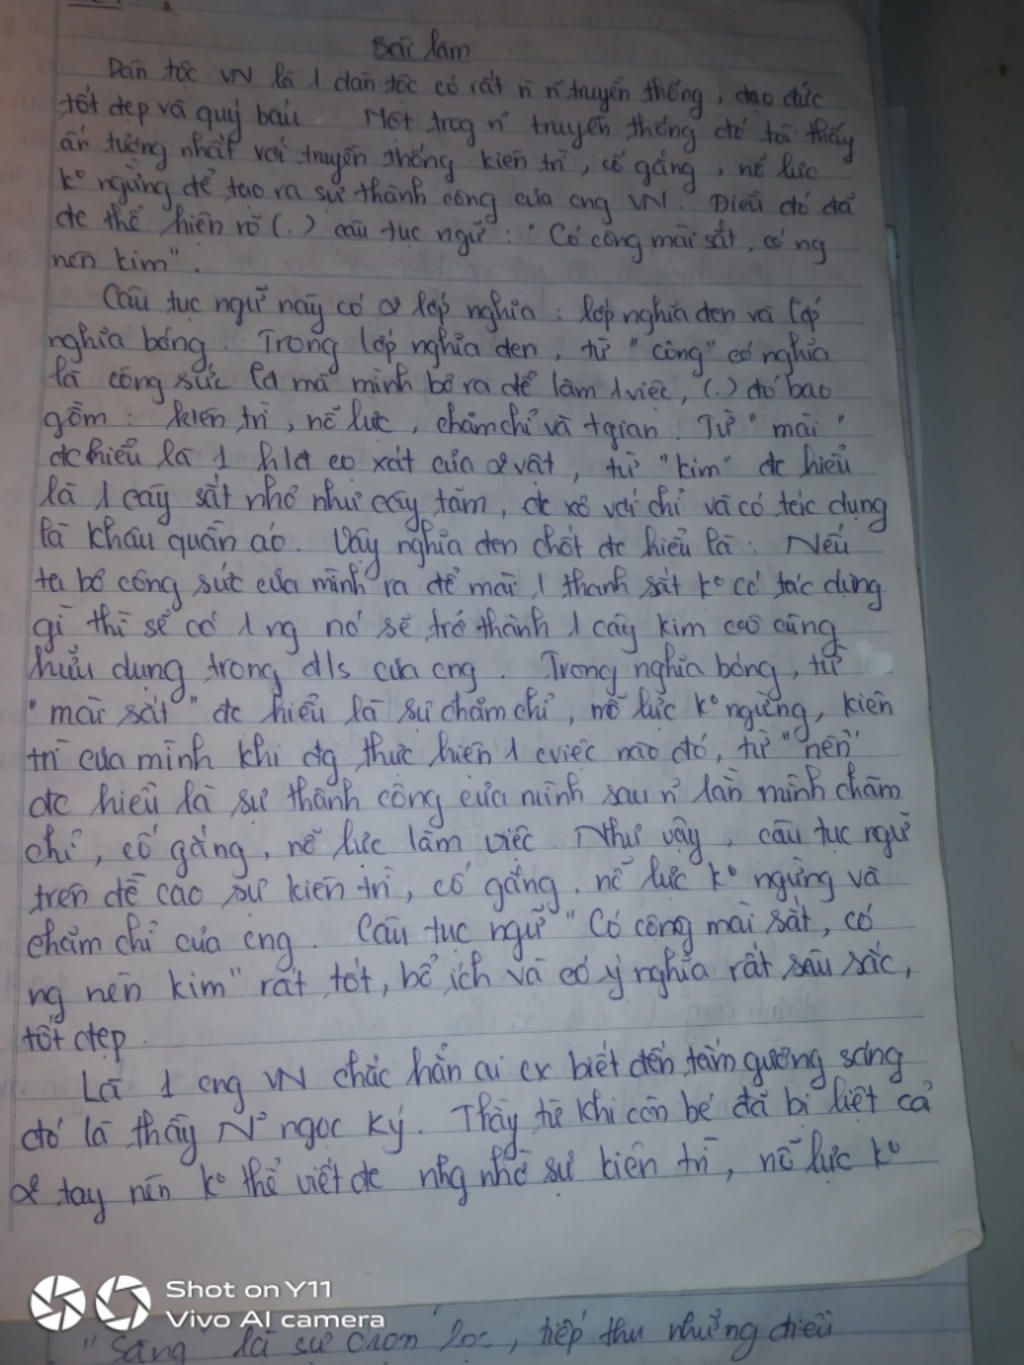 Bài làm
Dân tộc VN là 1 dân tộc có rất n n truyền thống, đạo đức
tốt đẹp và quý báu Một trog n~ truyền thống đó tôi thấy
ấn tượng nhất với truyền thống kiên trì, cố gắng, nỗ lực
k° ngừng để tạo ra sự thành công của cng VN. Điều đó đã
đc thể hiện rõ (.) câu tục ngữ: "Có công mài sắt, có ng
nên kim".
Câu tục ngữ này có 2 lớp nghĩa: lớp nghĩa đen và lớp
nghĩa bóng. Trong lớp nghĩa đen, từ "công" có nghĩa
là công sức lđ mà mình bỏ ra để làm 1 việc, (.) đó bao
gồm: kiên trì, nỗ lực, chăm chỉ và tgian. Từ "mài"
đc hiểu là 1 hđ cọ xát của 2 vật, từ "kim" đc hiểu
là 1 cây sắt nhỏ như cây tăm, đc xỏ với chỉ và có tác dụng
là khâu quần áo. Vậy nghĩa đen chốt đc hiểu là: Nếu
ta bỏ công sức của mình ra để mài 1 thanh sắt k° có tác dụng
gì thì sẽ có 1 ng nó sẽ trở thành 1 cây kim cũng
hữu dụng trong đ/s của cng. Trong nghĩa bóng, từ
"mài sắt" đc hiểu là sự chăm chỉ, nỗ lực k° ngừng, kiên
trì của mình khi đg thực hiện 1 cviệc nào đó, từ "nên"
đc hiểu là sự thành công của mình sau n~ lần mình chăm
chỉ, cố gắng, nỗ lực làm việc Như vậy, câu tục ngữ
trên đề cao sự kiên trì, cố gắng, nỗ lực k° ngừng và
chăm chỉ của cng. Câu tục ngữ "Có công mài sắt, có
ng nên kim" rất tốt, bổ ích và có ý nghĩa rất sâu sắc,
tốt đẹp.
Là 1 cng VN chắc hẳn ai cx biết đến tấm gương sáng
đó là thầy N~ ngọc Ký. Thầy từ khi còn bé đã bị liệt cả
2 tay nên k° thể viết đc nhg nhờ sự kiên trì, nỗ lực k°
Shot on Y11
Vivo AI camera
"Sàng" là sự chọn lọc, tiếp thu những điều